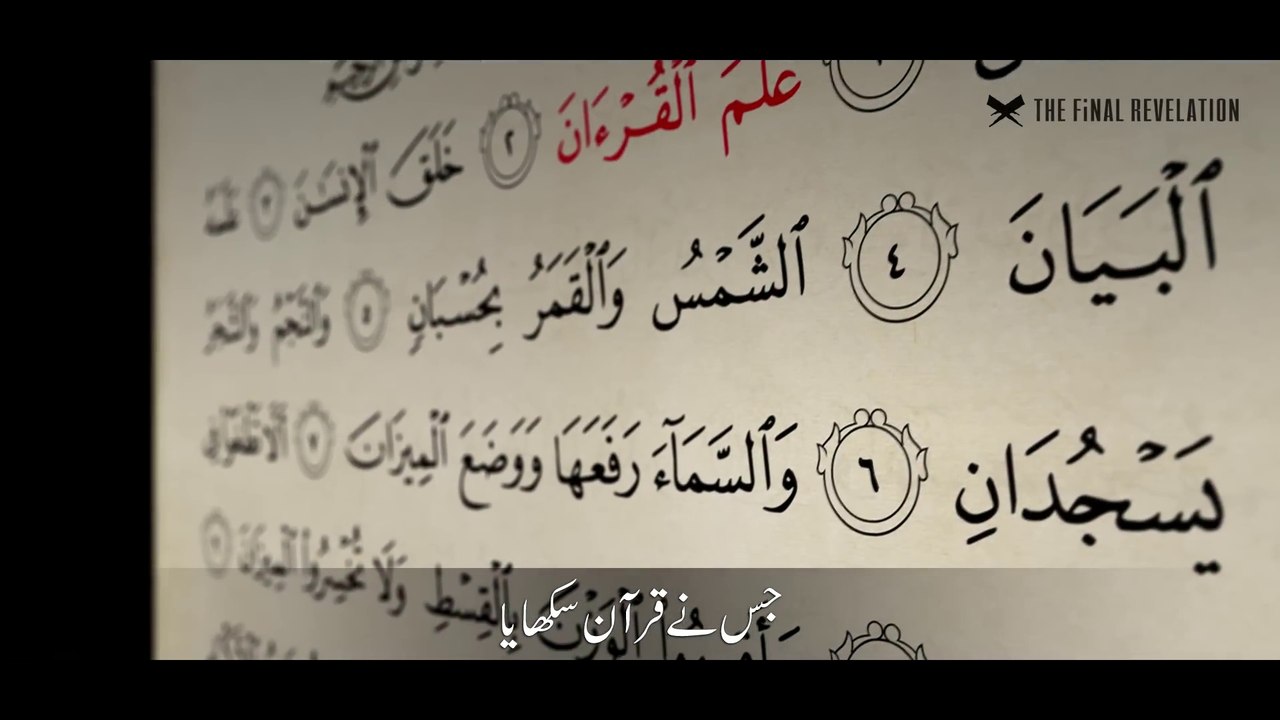 عَلَّمَ ٱلْقُرْءَانَ ٢ خَلَقَ ٱلْإِنسَـٰنَ ٣
THE FiNAL REVELATION
ٱلْبَيَانَ ٤ ٱلشَّمْسُ وَٱلْقَمَرُ بِحُسْبَانٍ ٥ وَٱلنَّجْمُ وَٱلشَّجَرُ
يَسْجُدَانِ ٦ وَٱلسَّمَآءَ رَفَعَهَا وَوَضَعَ ٱلْمِيزَانَ ٧
بِٱلْقِسْطِ وَلَا تُخْسِرُوا۟ ٱلْمِيزَانَ ٩
جس نے قرآن سکھایا